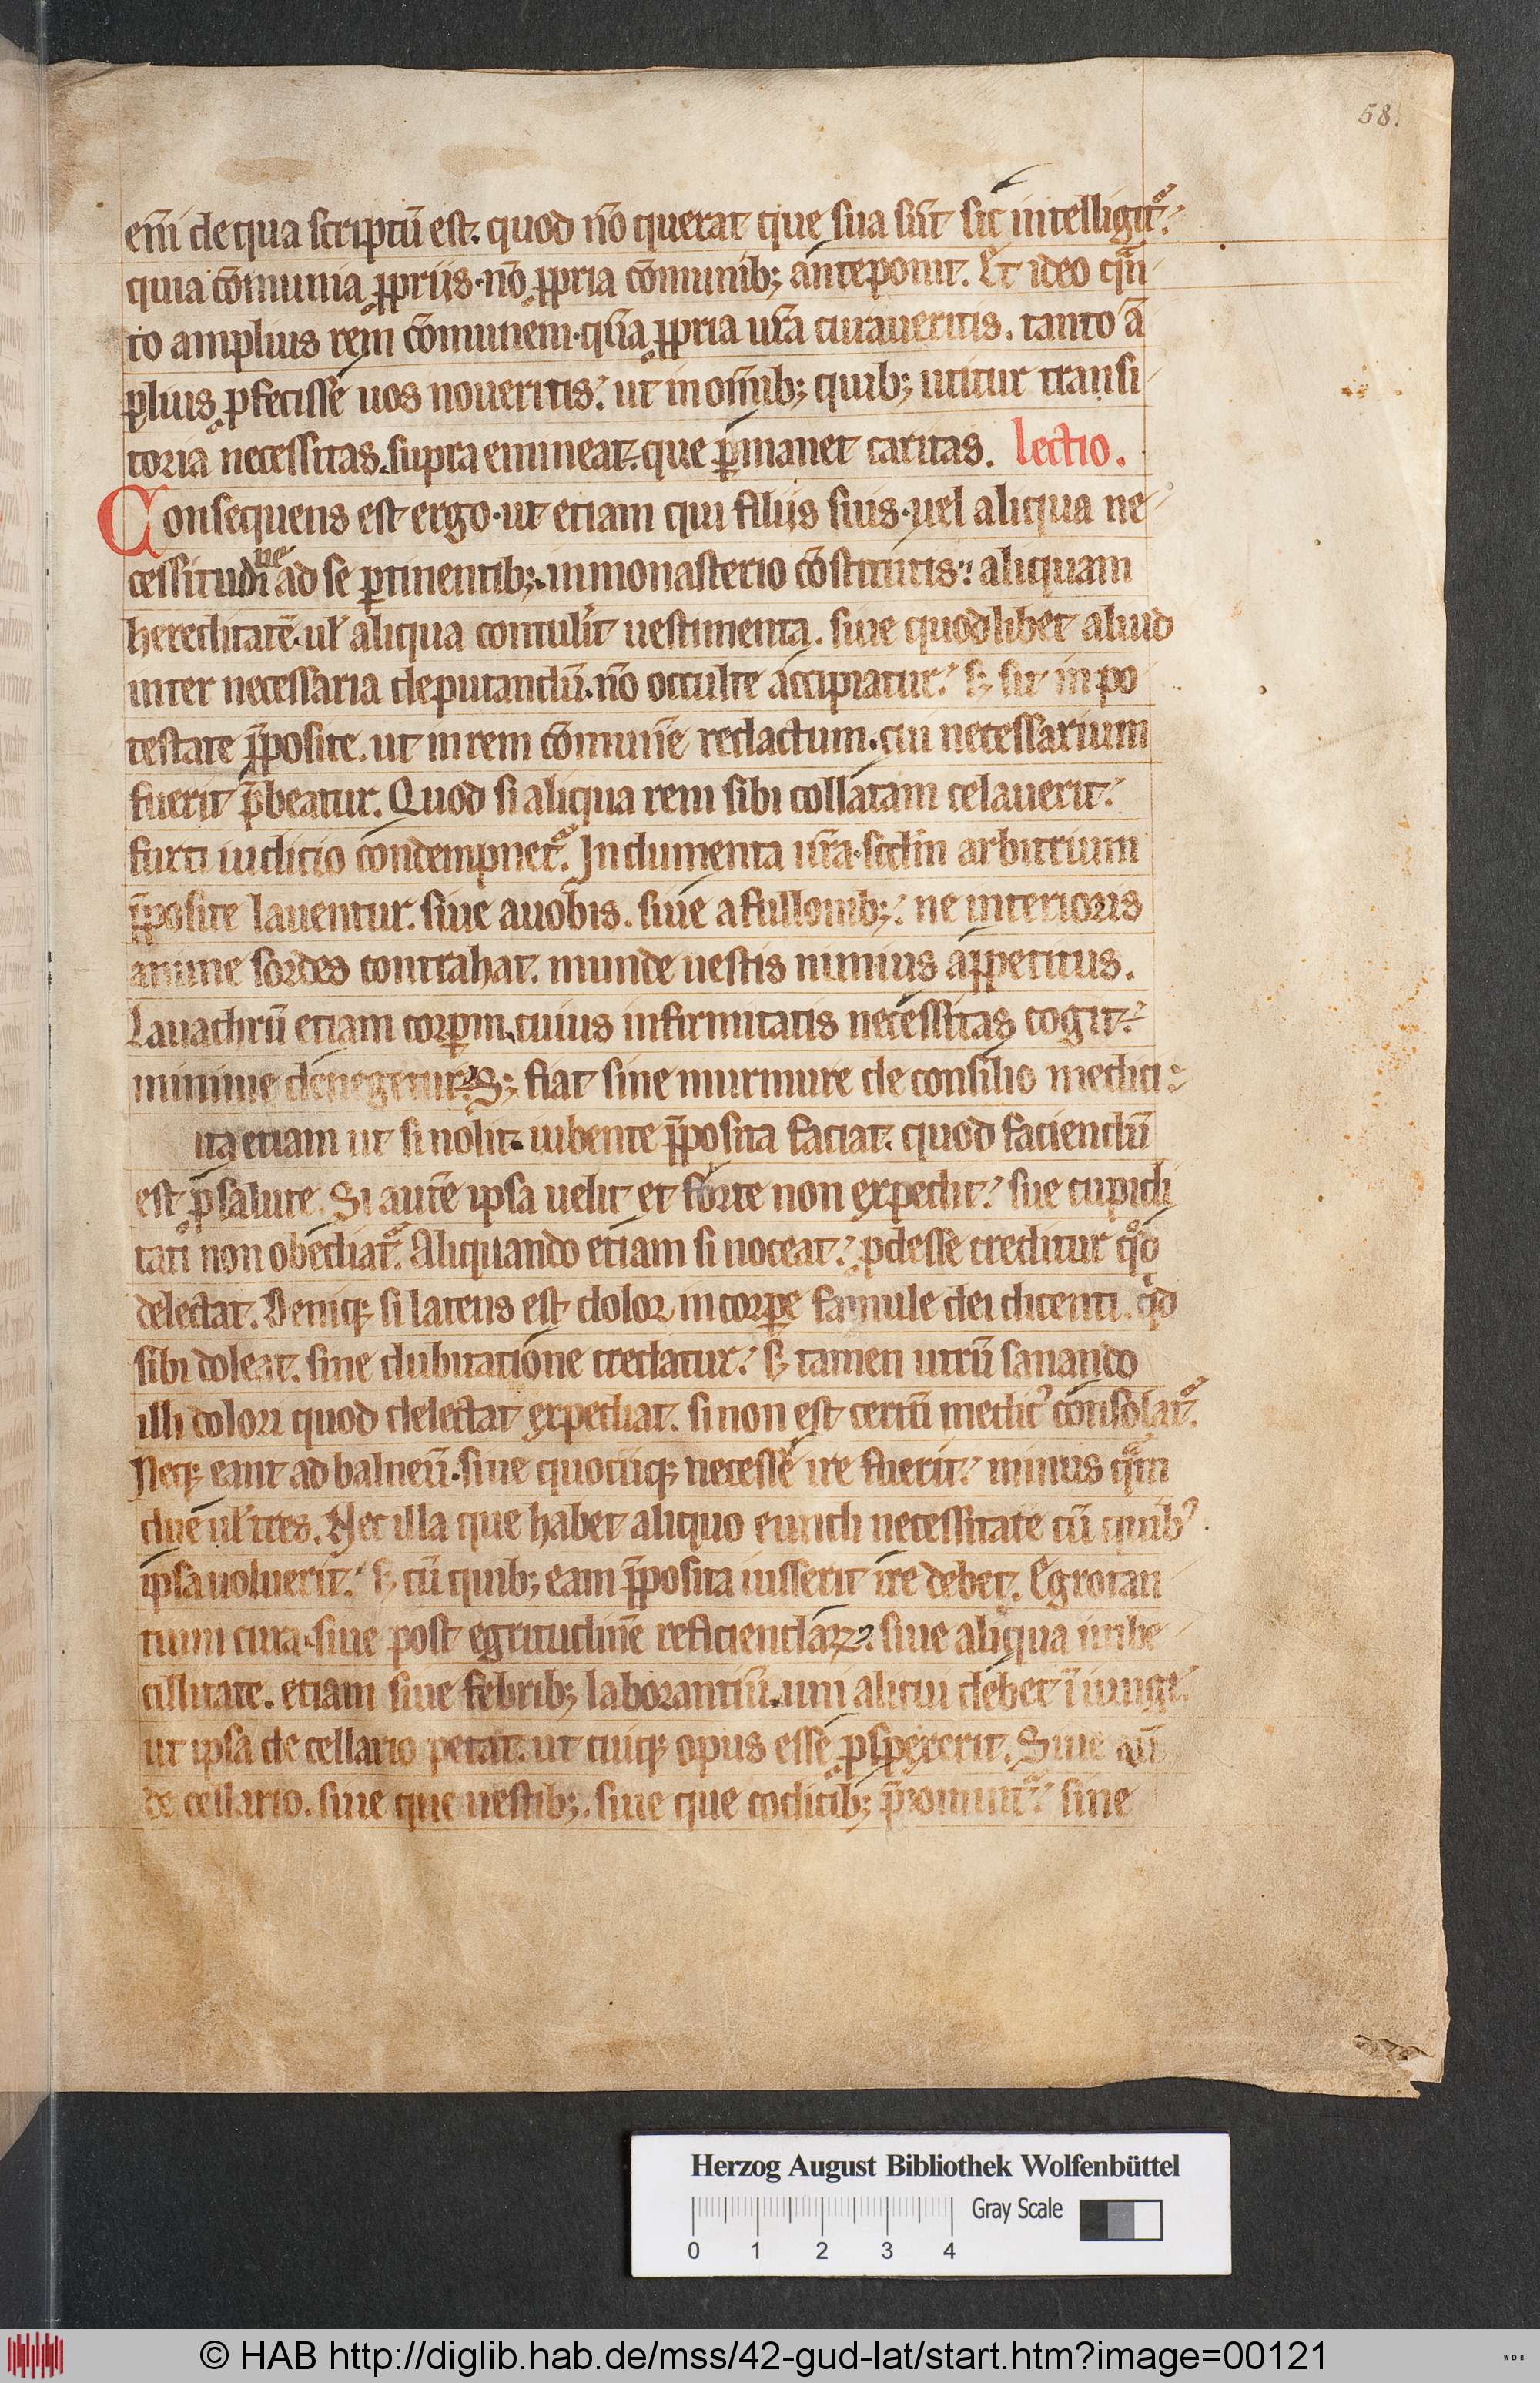 58.
em̄ de qua scriptū est. quod nō querat que sua sūt sic intelligit᷑.
quia cōmunia ꝓpriis. nō ꝓpria cōmunib; anteponit. Et ideo qn̄
to amplius rem cōmunem. qᷓ̄ ꝓpria ur̄a curaueritis. tanto ā
plius ꝓfecisse uos noueritis. ut in om̄ib; quib; utitur transi
toria necessitas. supra emineat. que ꝑmanet caritas. Lectio.
Consequens est ergo. ut etiam qui filiis suis. uel aliqua ne
cessitudine ad se ꝑtinentib;. in monasterio cōstitutis. aliquam
hereditatē. ul̄ aliqua contulīt uestimenta. siue quodlibet aliud
inter necessaria deputandū. nō occulte accipiatur. s; sit in po
testate p̄posite. ut in rem cōmunē redactum. cui necessarium
fuerit p̄beatur. Quod si aliqua rem sibi collatam celauerit.
furti iudicio condempnet᷑. Indumenta ur̄a. scdm̄ arbitrium
p̄posite lauentur. siue a uobis. siue a fullonib;. ne interioris
anime sordes contrahat. munde uestis nimius appetitus.
Lauachrū etiam corꝑm. cuius infirmitatis necessitas cogit.
minime denegetur. S; fiat sine murmure de consilio medici:
ita etiam ut si nolit. iubente p̄posita faciat. quod faciendū
est ꝓ salute. Si autē ipsa uelit et forte non expedit. sue cupidi
tati non obediat᷑. Aliquando etiam si noceat. ꝓdesse creditur qd̄
delectat. Deniqꝫ si latens est dolor in corꝑe famule dei dicenti. qd̄
sibi doleat. sine dubitatione credatur. s; tamen utrū sanando
illi dolori quod delectat expediat. si non est certū medicꝰ consolat᷑.
Neqꝫ eant ad balneū. siue quocūqꝫ necesse ire fuerit. minus qᷓm
due ul̄ tres. Nec illa que habet aliquo eundi necessitate cū quibꝰ
ipsa uoluerit. s; cū quib; eam p̄posita iusserit ire debet. Egrotan
tium cura. siue post egritudinē reficiendaꝝ. siue aliqua inbe
cillitate. etiam siue febrib; laborantiū. uni alicui debet īiungi.
ut ipsa de cellario petat. ut cuiqꝫ opus esse ꝓspexerit. Siue aū
de cellario. siue que uestib;. siue que codicib; p̄ponunt᷑. sine
Herzog August Bibliothek Wolfenbüttel
Gray Scale
0 1 2 3 4
© HAB http://diglib.hab.de/mss/42-gud-lat/start.htm?image=00121
WDB